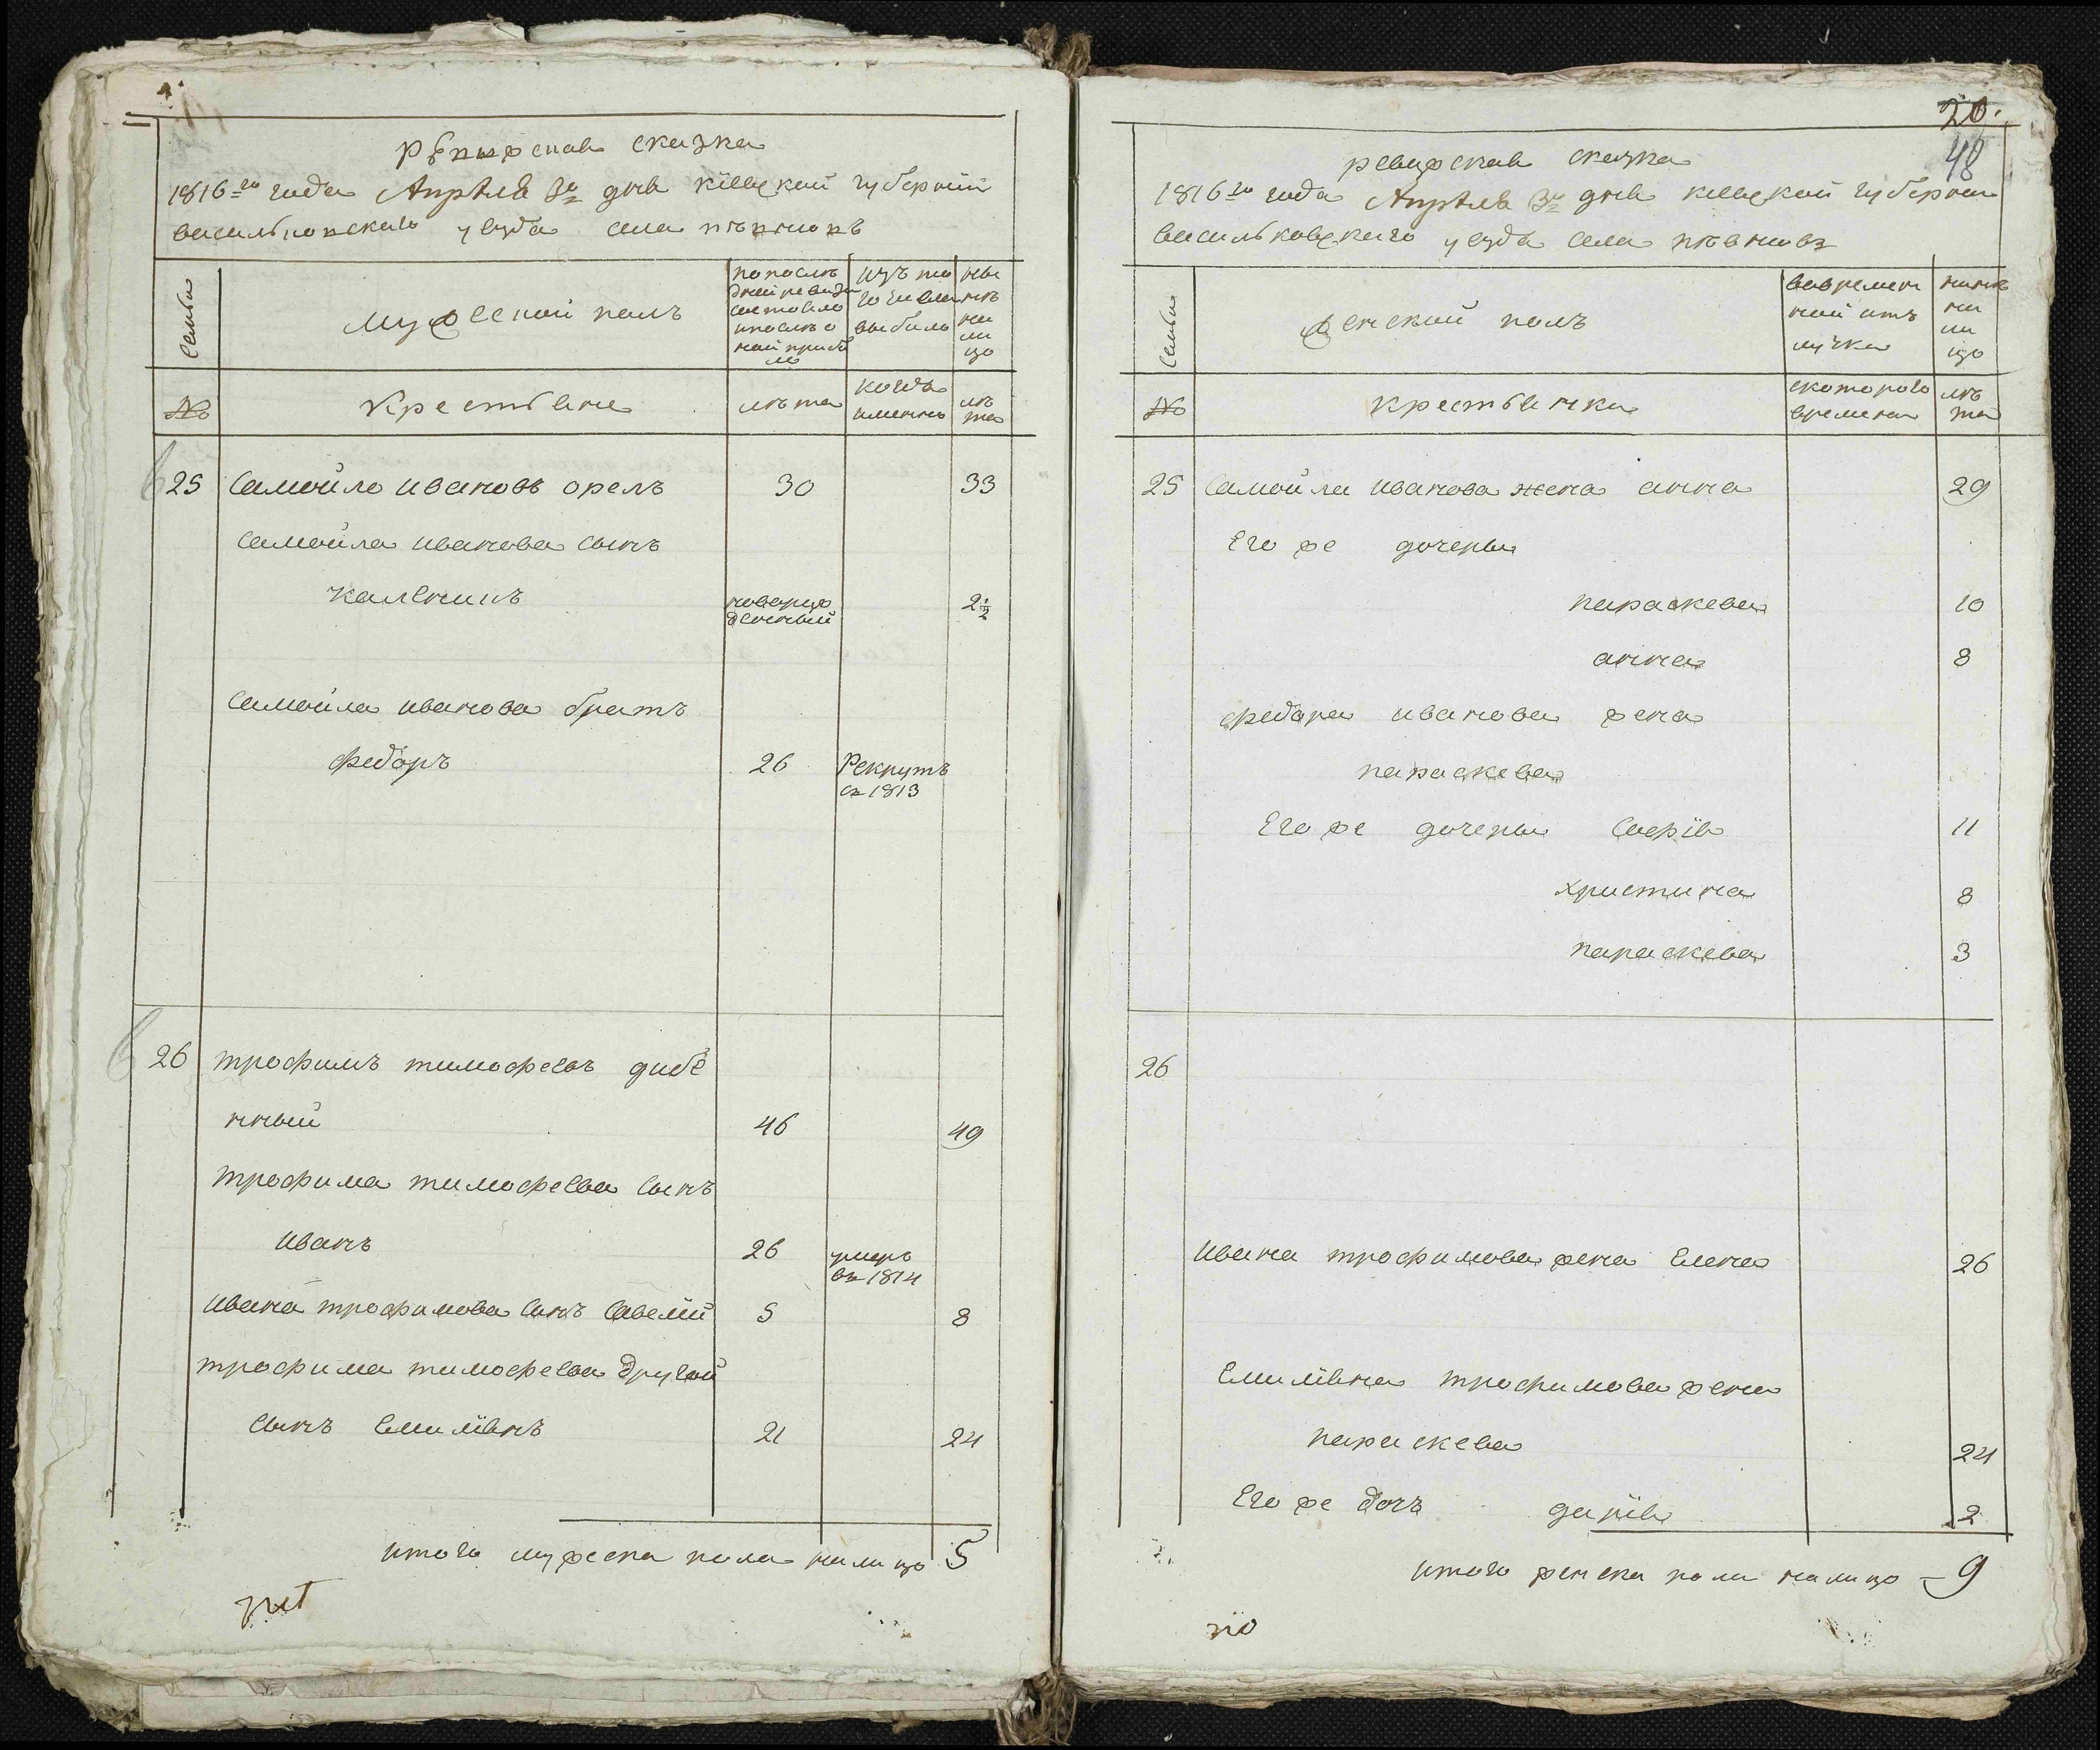 Ревижская сказка
1816го года Апрѣля 3го дня кіевской губерніи
василковскаго уезда села пѣвновъ
Семьи
Мужеской полъ
по послѣ
дней ревизи
состояло
и послѣ о
ной прибы
ло
изъ то
го числа
выбыло
ны
нѣ
на
ли
цо
№
Крестьяне
лѣта
когда
именно
лѣ
та
25 Самойло ивановъ орелъ 30 33
Самойла иванова сынъ
каленикъ новорож
денный 2 1/2
Самойла иванова братъ
федоръ 26 Рекрутъ
въ 1813
26 трофимъ тимофеевъ диде
нный 46 49
трофима тимофеева сынъ
иванъ 26 умеръ
въ 1814
ивана трофимова сынъ савелій 5 8
трофима тимофеева другой
сынъ Емиліянъ 21 24
итого мужеска пола налицо 5
20.
48
ревижская сказка
1816го года Апрѣля 3го дня кіевской губерніи
василковскаго уезда села пѣвновъ
Семьи
женской полъ
вовремен
ной отъ
лучки
нынѣ
на
ли
цо
№
крестьянки
скотораго
времени
лѣ
та
25 Самойла иванова жена анна 29
Его же дочеры
параскева 10
анна 8
федора иванова жена
параскева
Его же дочеры Софія 11
христина 8
параскева 3
26
ивана трофимова жена Елена 26
Емиліяна трофимова жена
параскева 24
Его же дочъ дарія 2
итого женска пола налицо – 9
по